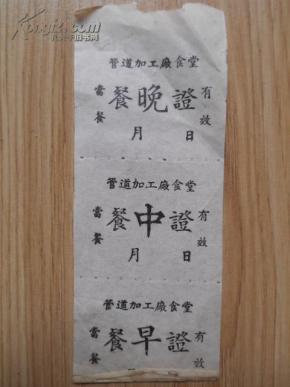 管道加工廠食堂
當餐 餐晚證 有效
月 日
管道加工廠食堂
當餐 餐中證 有效
月 日
管道加工廠食堂
當餐 餐早證 有效